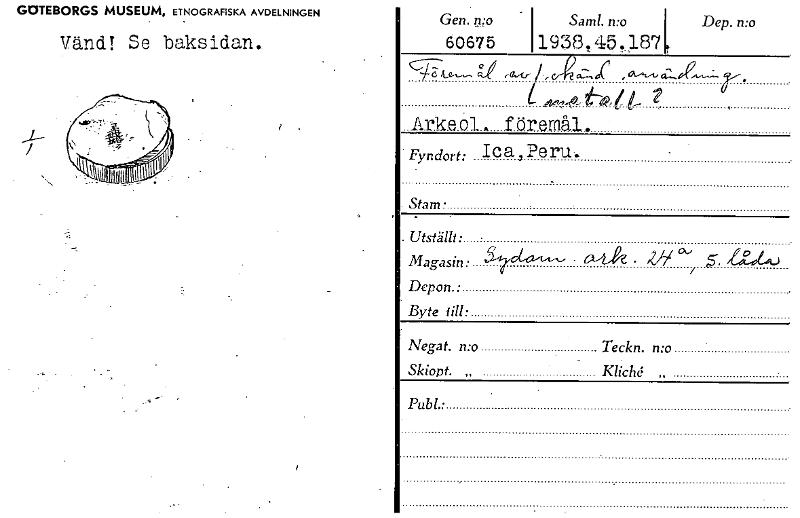 GÖTEBORGS MUSEUM, ETNOGRAFISKA AVDELNINGEN
Vänd! Se baksidan.
1/1
Gen. n:o
60675
Saml. n:o
1938.45.187.
Dep. n:o
Föremål av okänd användning.
(metall?
Arkeol. föremål.
Fyndort: Ica, Peru.
Stam:
Utställt:
Magasin: Sydam. ark. 24a, 5. låda
Depon.:
Byte till:
Negat. n:o
Teckn. n:o
Skiopt. „
Kliché „
Publ.: